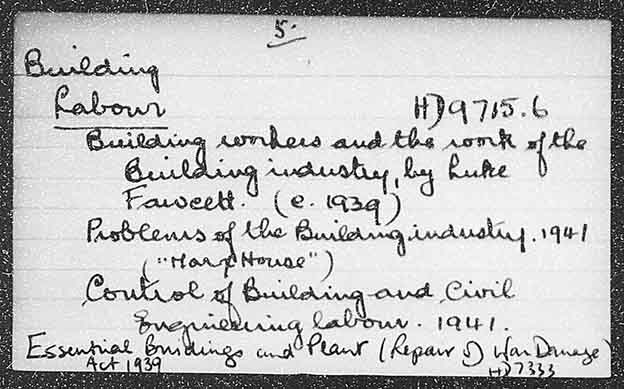 5.
Building
Labour HD9715.6
Building workers and the work of the
Building industry, by Luke
Fawcett. (c. 1939)
Problems of the Building industry. 1941
("Marx House")
Control of Building and Civil
Engineering labour. 1941.
Essential Buildings and Plant (Repair of War Damage)
Act 1939 HD7333